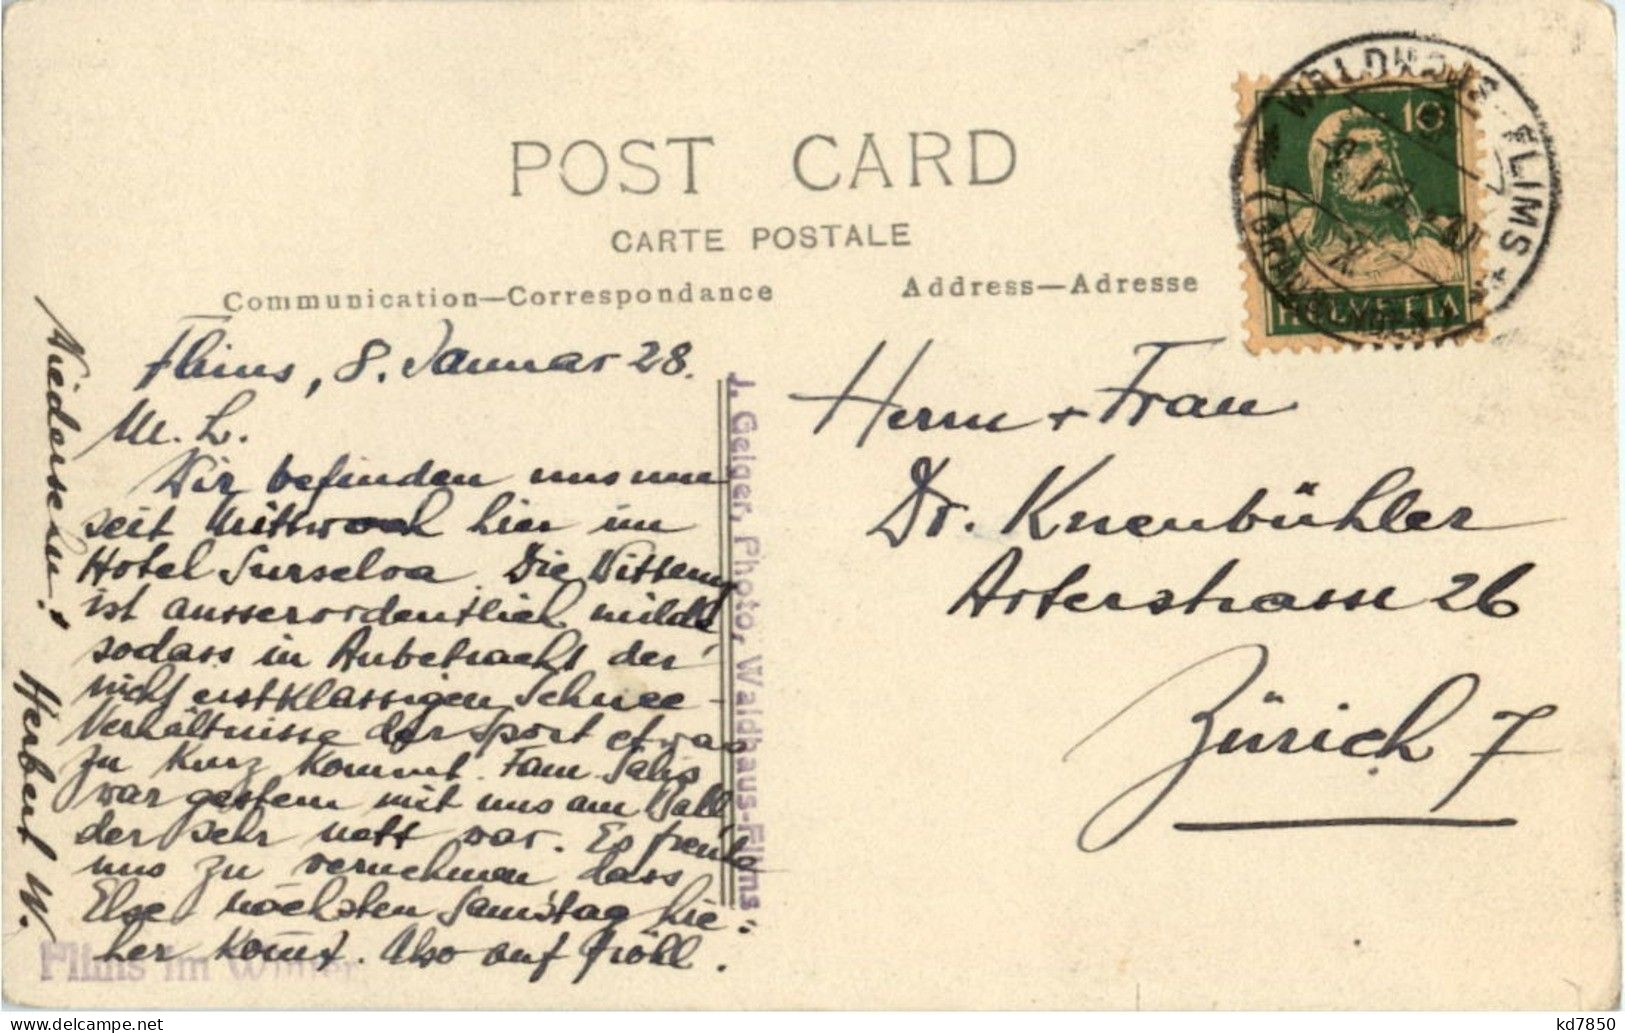 POST CARD
CARTE POSTALE
Communication—Correspondance
Address—Adresse
WALDHAUS - FLIMS
10
HELVETIA
Flims, 8. Januar 28.
M. L.
Wir befinden uns nun
seit Mittwoch hier im
Hotel Surselva. Die Witterung
ist ausserordentlich milde
sodass in Anbetracht der
nicht erstklassigen Schnee-
Verhältnisse der Sport etwas
zu kurz kommt. Fam.
war gestern mit uns am Ball,
der sehr nett war. Es freute
uns zu vernehmen dass
Else nächsten Samstag hie=
her kommt. Also auf fröhl.
Niedersehn!
Herbert W.
J. Geiger, Photo, Waldhaus-Flims
Flims im Winter
Herrn + Frau
Dr. Knenbühler
Asterstrasse 26
Zürich 7
kd7850